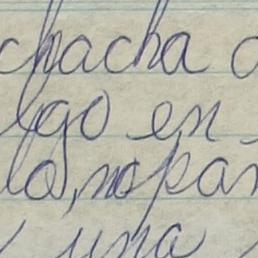 chacha
lgo en
lo, no pan
y una